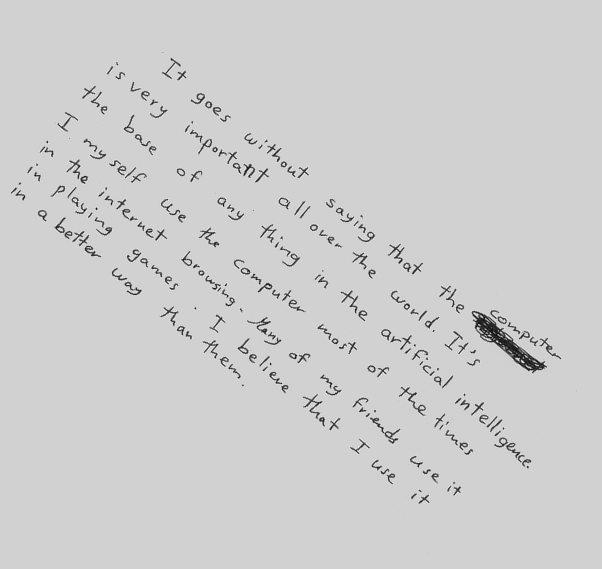 It goes without saying that the computer
is very important all over the world. It's
the base of any thing in the artificial intelligence.
I myself use the computer most of the times
in the internet browsing. Many of my friends use it
in playing games. I believe that I use it
in a better way than them.